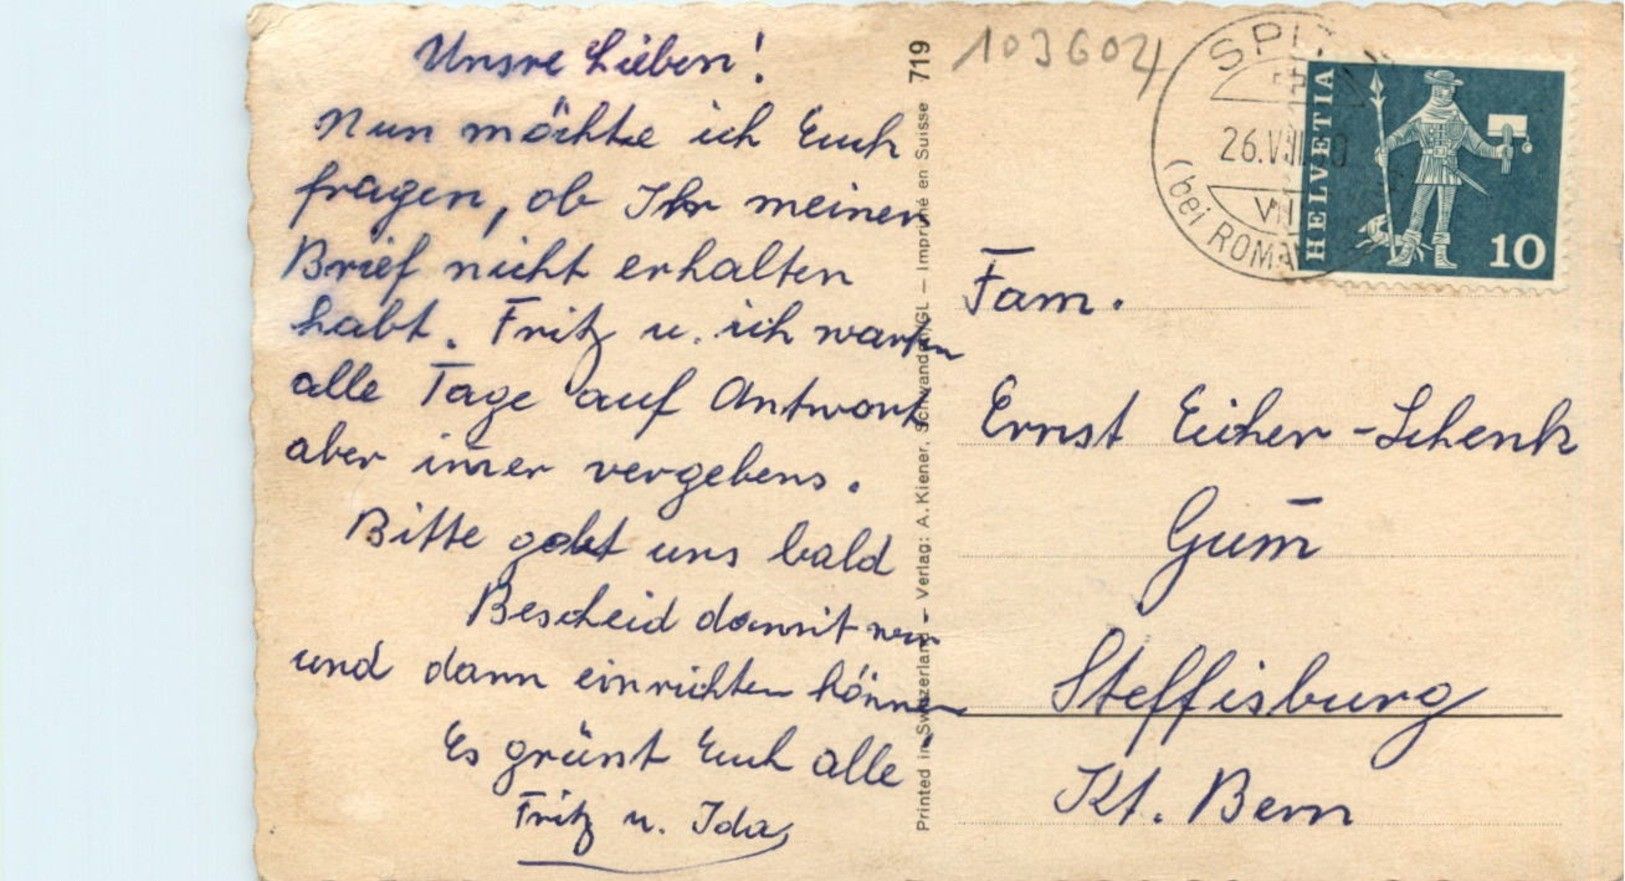 Unsre Lieben!
Nun möchte ich Euch
fragen, ob Ihr meinen
Brief nicht erhalten
habt. Fritz u. ich warten
alle Tage auf Antwort
aber im̄er vergebens.
Bitte gebt uns bald
Bescheid damit wir
und dann einrichten können
Es grünt Euch alle
Fritz u. Ida
Printed in Switzerland – Verlag: A. Kiener, Schwanden/GL – Imprimé en Suisse 719
103604
26.VIII
VIII
(bei ROMA
HELVETIA
10
Fam.
Ernst Eicher-Schenk
Gum̄
Steffisburg
Kt. Bern